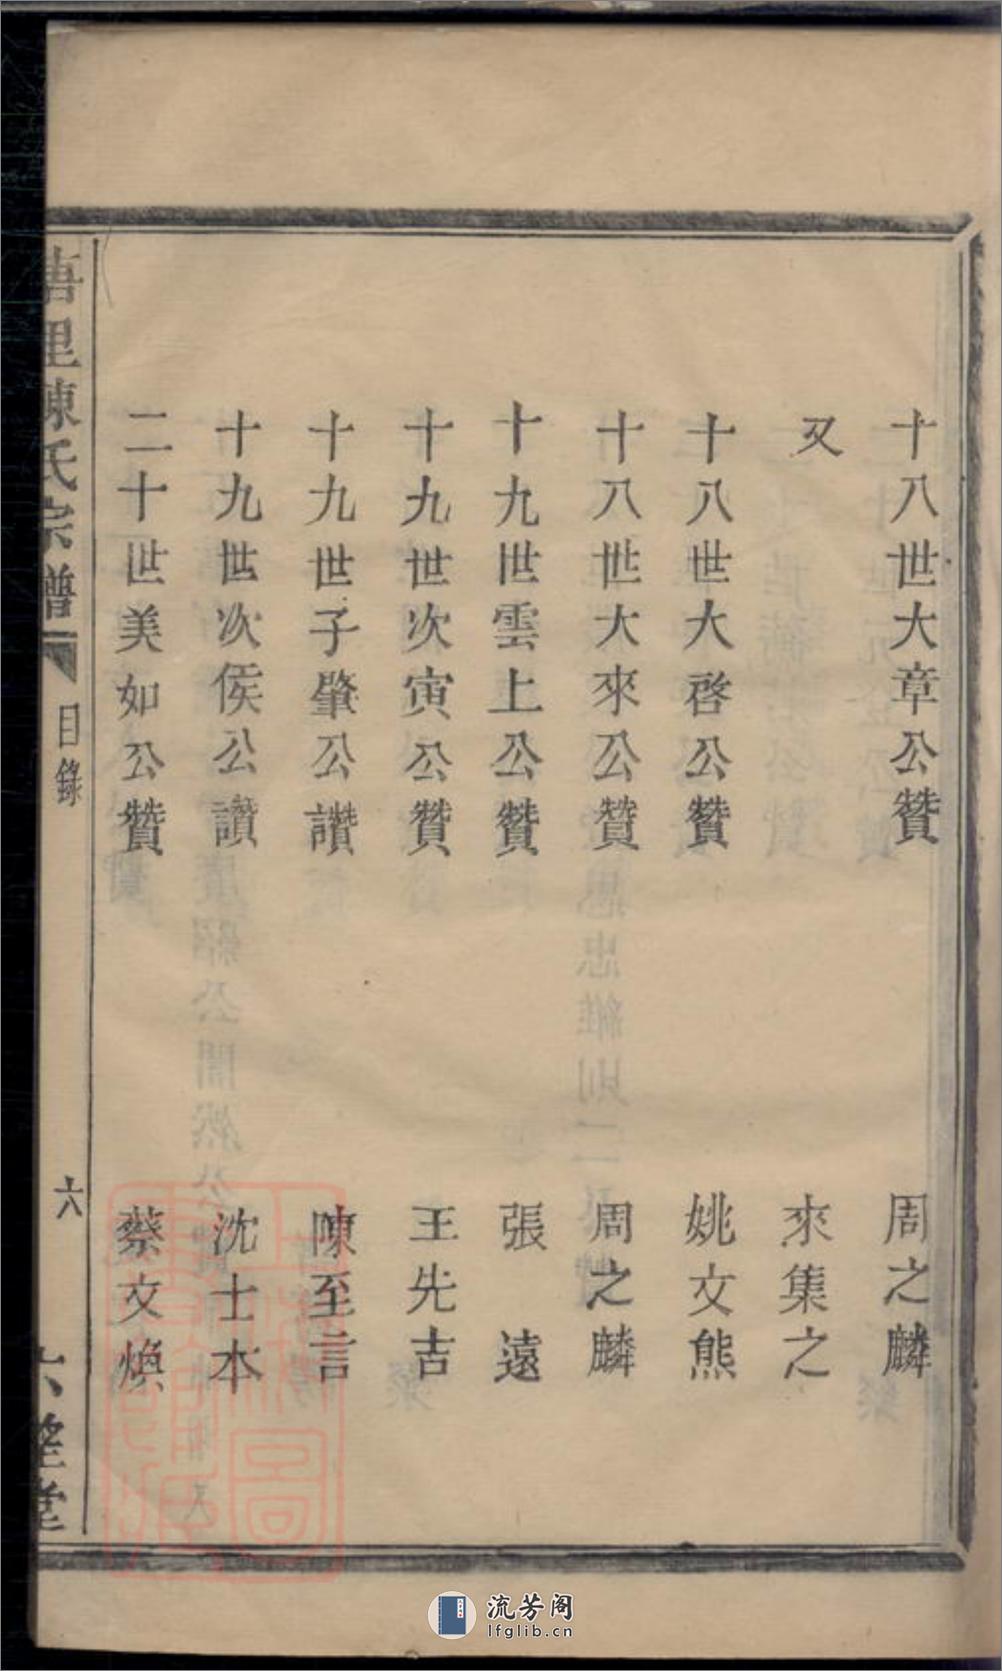 十八世大章公贊 周之麟
又 來集之
十八世大啓公贊 姚文熊
十八世大來公贊 周之麟
十九世雲上公贊 張遠
十九世次寅公贊 王先吉
十九世子肇公讚 陳至言
十九世次侯公讚 沈士本
二十世美如公贊 蔡文煥
里陳氏宗譜 目錄 六 堂
流芳阁
lfglib.cn